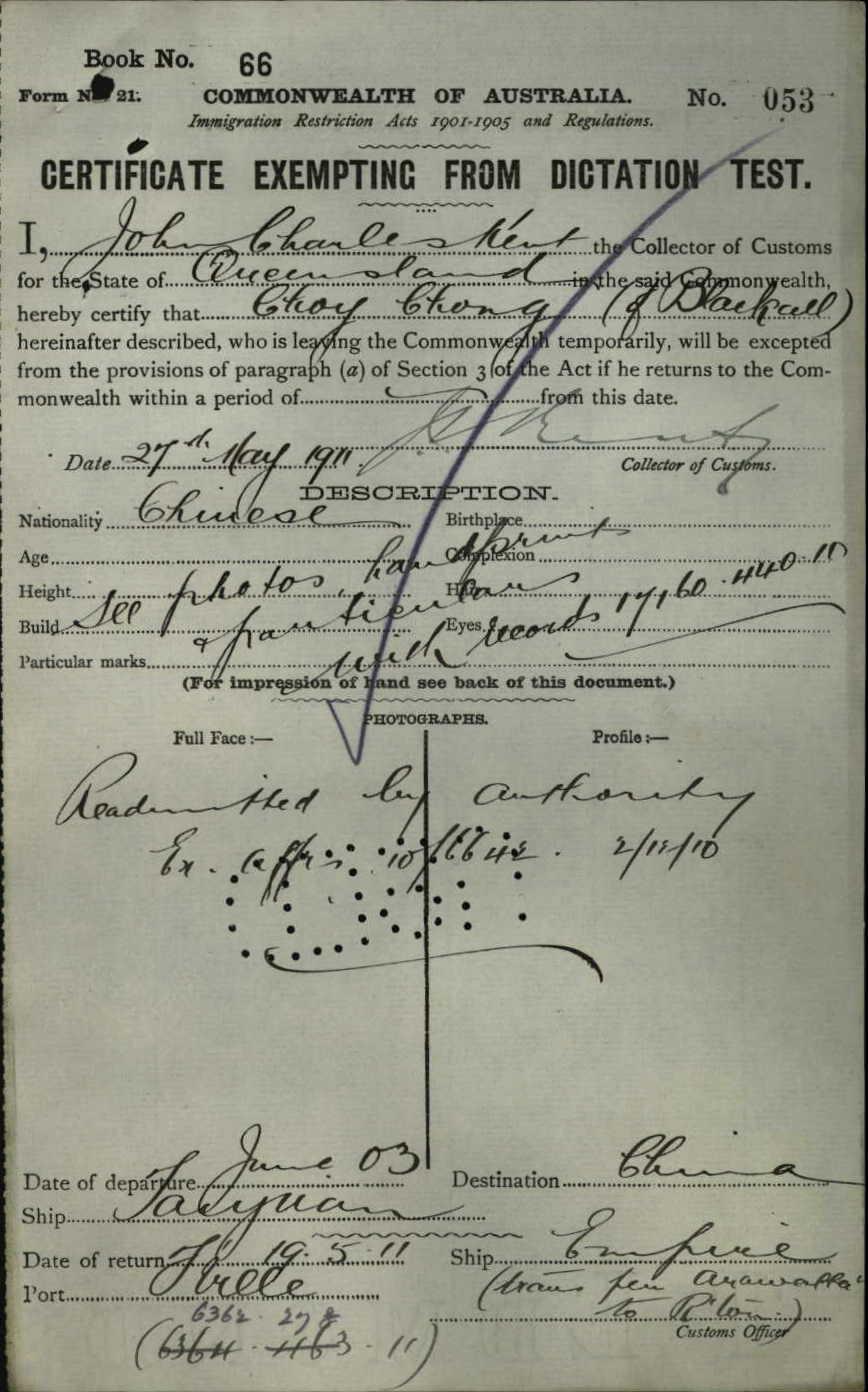 Book No. 66
Form No 21. COMMONWEALTH OF AUSTRALIA. No. 053
Immigration Restriction Acts 1901-1905 and Regulations.
CERTIFICATE EXEMPTING FROM DICTATION TEST.
I, John Charles Kent the Collector of Customs
for the State of Queensland in the said Commonwealth,
hereby certify that Choy Chong (of Blackall)
hereinafter described, who is leaving the Commonwealth temporarily, will be excepted
from the provisions of paragraph (a) of Section 3 of the Act if he returns to the Com-
monwealth within a period of from this date.
Date 27th May 1911. Kent
Collector of Customs.
DESCRIPTION.
Nationality Chinese Birthplace
Age Complexion
Height Hair
Build Eyes
Particular marks
See photos, handprints
& particulars
with records 17160.440.10
(For impression of hand see back of this document.)
PHOTOGRAPHS.
Full Face :— Profile :—
Readmitted by authority
Ex. Affrs 10/6642. 2/12/10
Date of departure June 03 Destination China
Ship Taiyuan
Date of return 19.5.11 Ship Empire
Port T'ville (trans per Arawatta
to R'ton)
Customs Officer
6362
11)